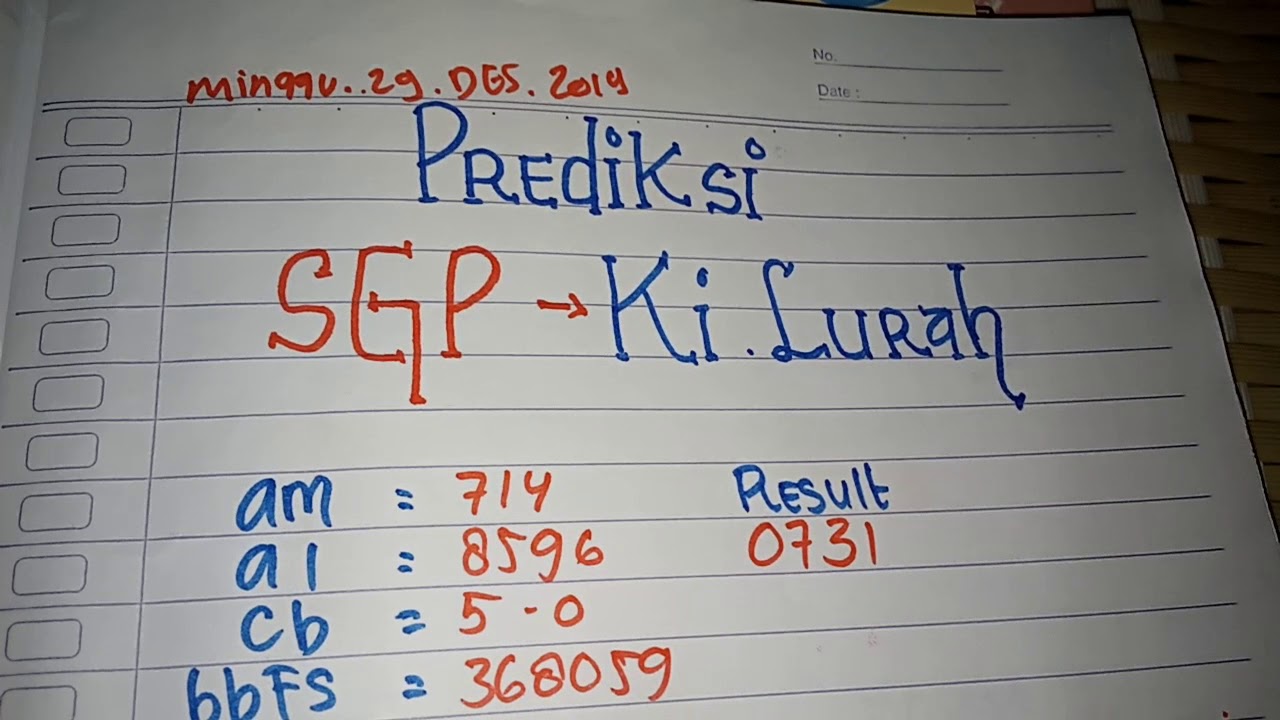 No.
Date :
minggu..29.DES.2019
PREdiKsi
SGP → Ki.LURah
am = 714 RESUlt
a1 = 8596 0731
cb = 5-0
bbFS = 368059